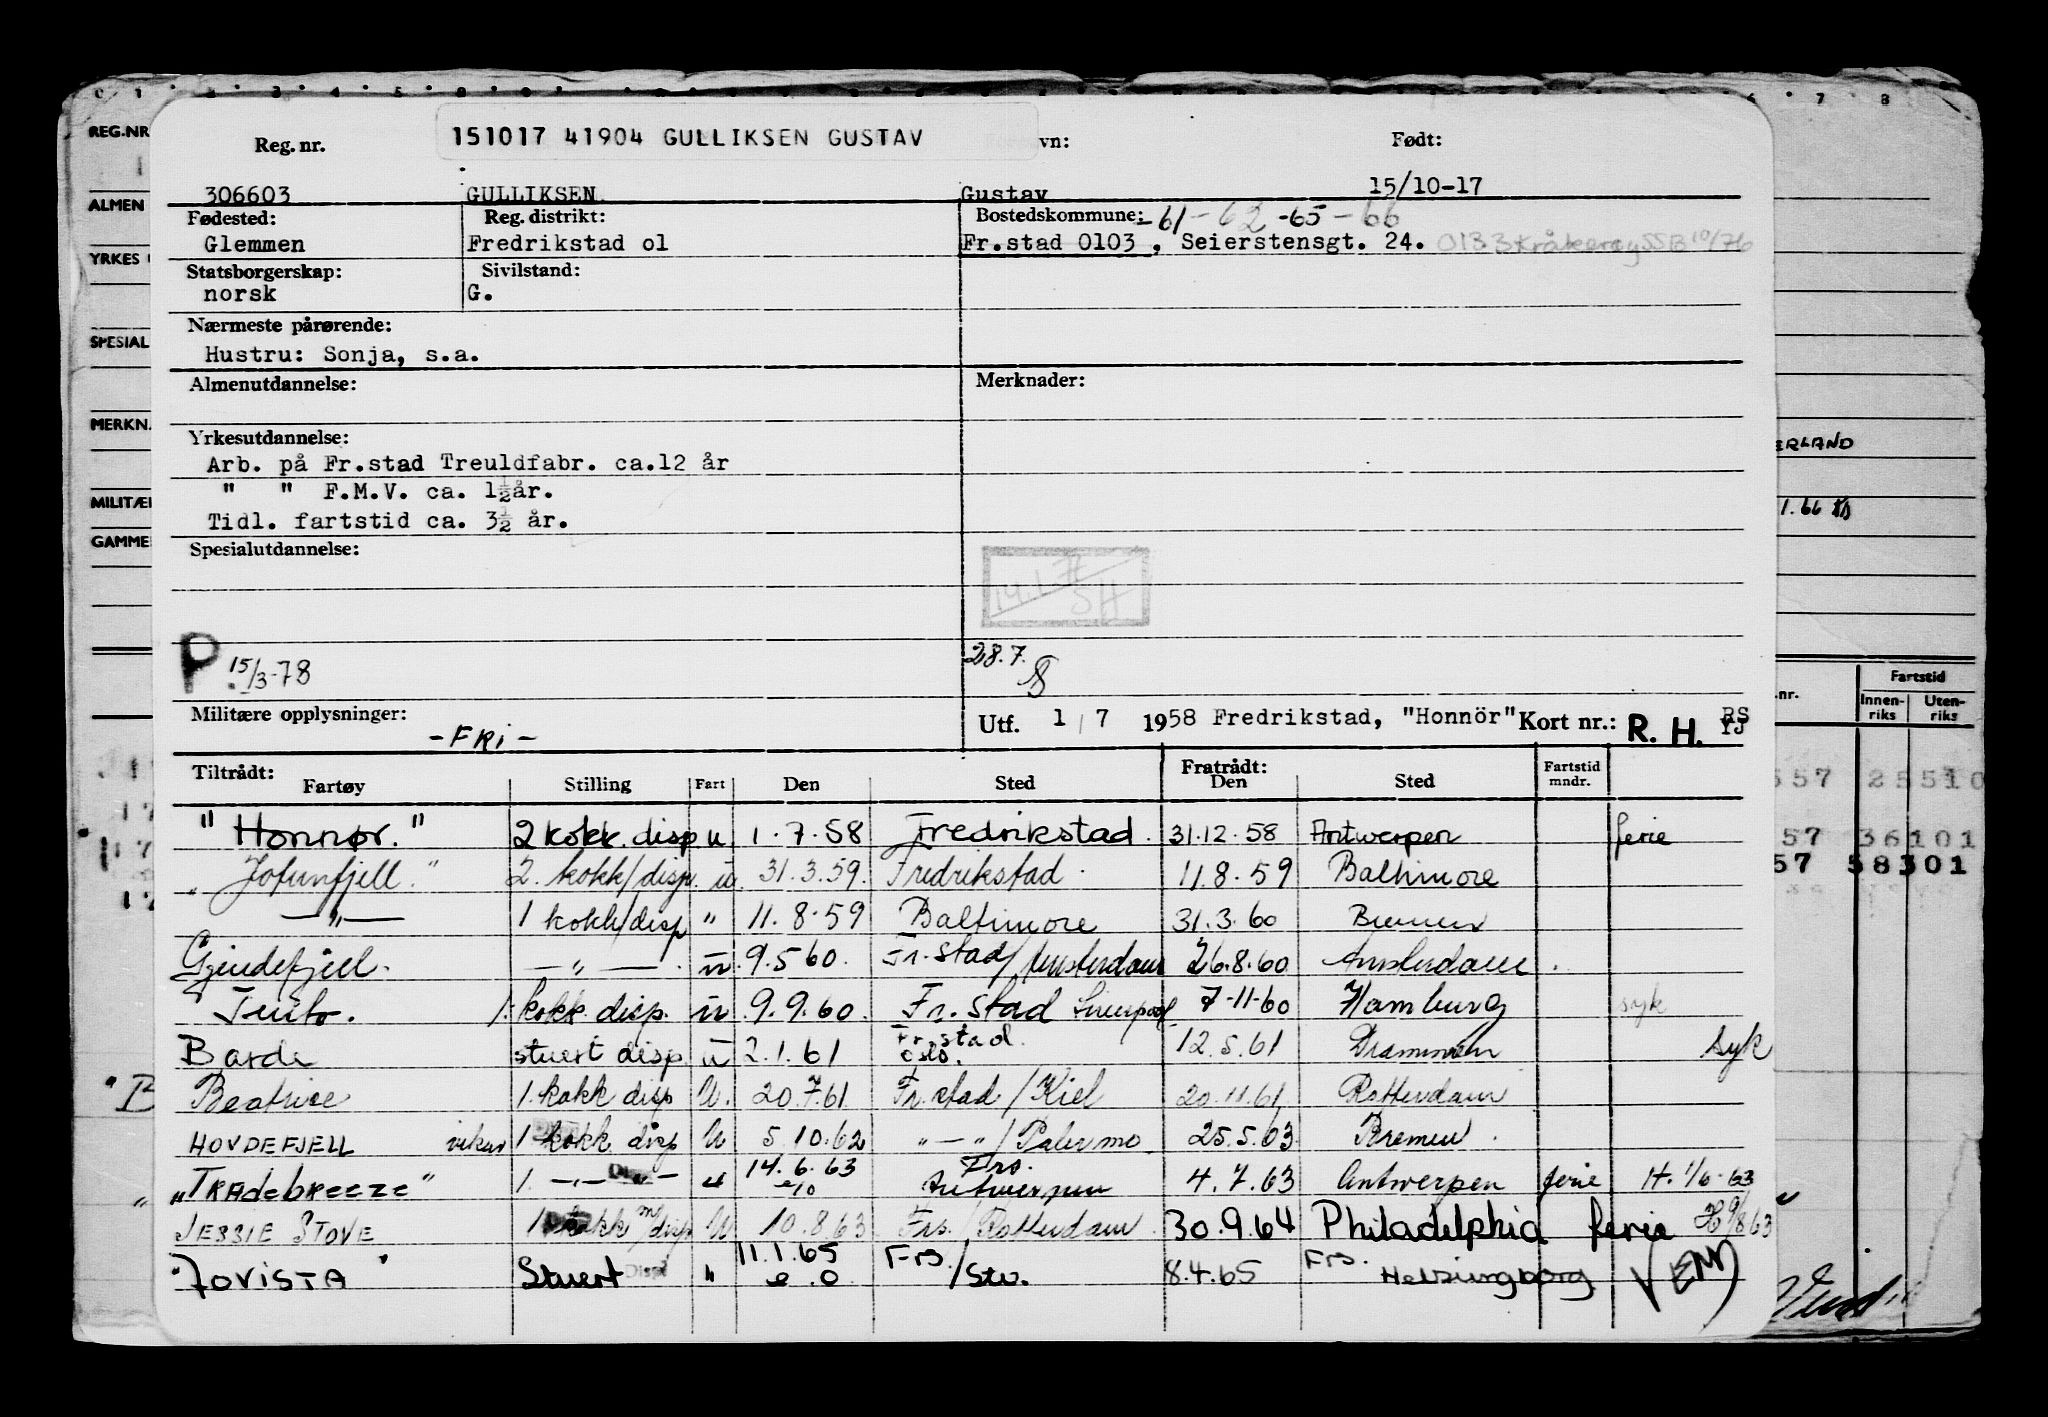 0 1 2 3 4 5 8 0 6 7 8
REG.NR
ALMEN
YRKES
SPESIAL
MERKN.
MILITÆR
GAMME
151017 41904 GULLIKSEN GUSTAV
Reg. nr. vn: Født:
306603 GULLIKSEN Gustav 15/10-17
Fødested: Reg. distrikt: Bostedskommune: -61-62-65-66
Glemmen Fredrikstad ol Fr.stad 0103, Seierstensgt. 24. 0133 Kråkerøy SSB 10/76
Statsborgerskap: Sivilstand:
norsk G.
Nærmeste pårørende:
Hustru: Sonja, s.a.
Almenutdannelse: Merknader:
Yrkesutdannelse:
Arb. på Fr.stad Treuldfabr. ca.12 år
" " F.M.V. ca. 1½år.
Tidl. fartstid ca. 3½ år.
Spesialutdannelse:
SH
P 15/3-78 28.7.
Militære opplysninger: Utf. 1/7 1958 Fredrikstad, "Honnör" Kort nr.: R. H. RS YJ
-FRI-
Tiltrådt: Fratrådt:
Fartøy Stilling Fart Den Sted Den Sted Fartstid mndr.
"Honnør." 2 kokk disp u. 1.7.58 Fredrikstad. 31.12.58 Antwerpen ferie
"Jotunfjell." 2. kokk/disp. u. 31.3.59. Fredrikstad. 11.8.59 Baltimore
—"— 1 kokk/disp " 11.8.59 Baltimore 31.3.60 Bremen
Gjendefjell. —"—. u. 9.5.60. Fr.stad/Amsterdam 26.8.60 Amsterdam.
Tento. 1. kokk disp. u. 9.9.60. Fr.stad Liverpool 7-11-60 Hamburg syk
Barde stuert disp. u 2.1.61 Fr.stad. Oslo. 12.5.61 Drammen syk
Beatrice 1. kokk disp U. 20.7.61 Fr.stad/Kiel 20.11.61 Rotterdam
HOVDEFJELL vikar 1 kokk disp U 5.10.62 "—"/Palermo 25.5.63 Bremen.
"TRAdebreeze" 1. —"— " 14.6.63 Frs. Antwerpen 4.7.63 Antwerpen ferie H. 1/6-63
JESSIE STOVE 1 kokk m/disp U 10.8.63 Frs./Rotterdam. 30.9.64 Philadelphia ferie H 9/8 63
"JOVISTA" Stuert Disp " 11.1.65 e.o. Frs./Stv. 8.4.65 Frs. Helsingborg
ERLAND
1.66
.nr. Fartstid
Innen-riks Uten-riks
557 25510
57 36101
57 58301